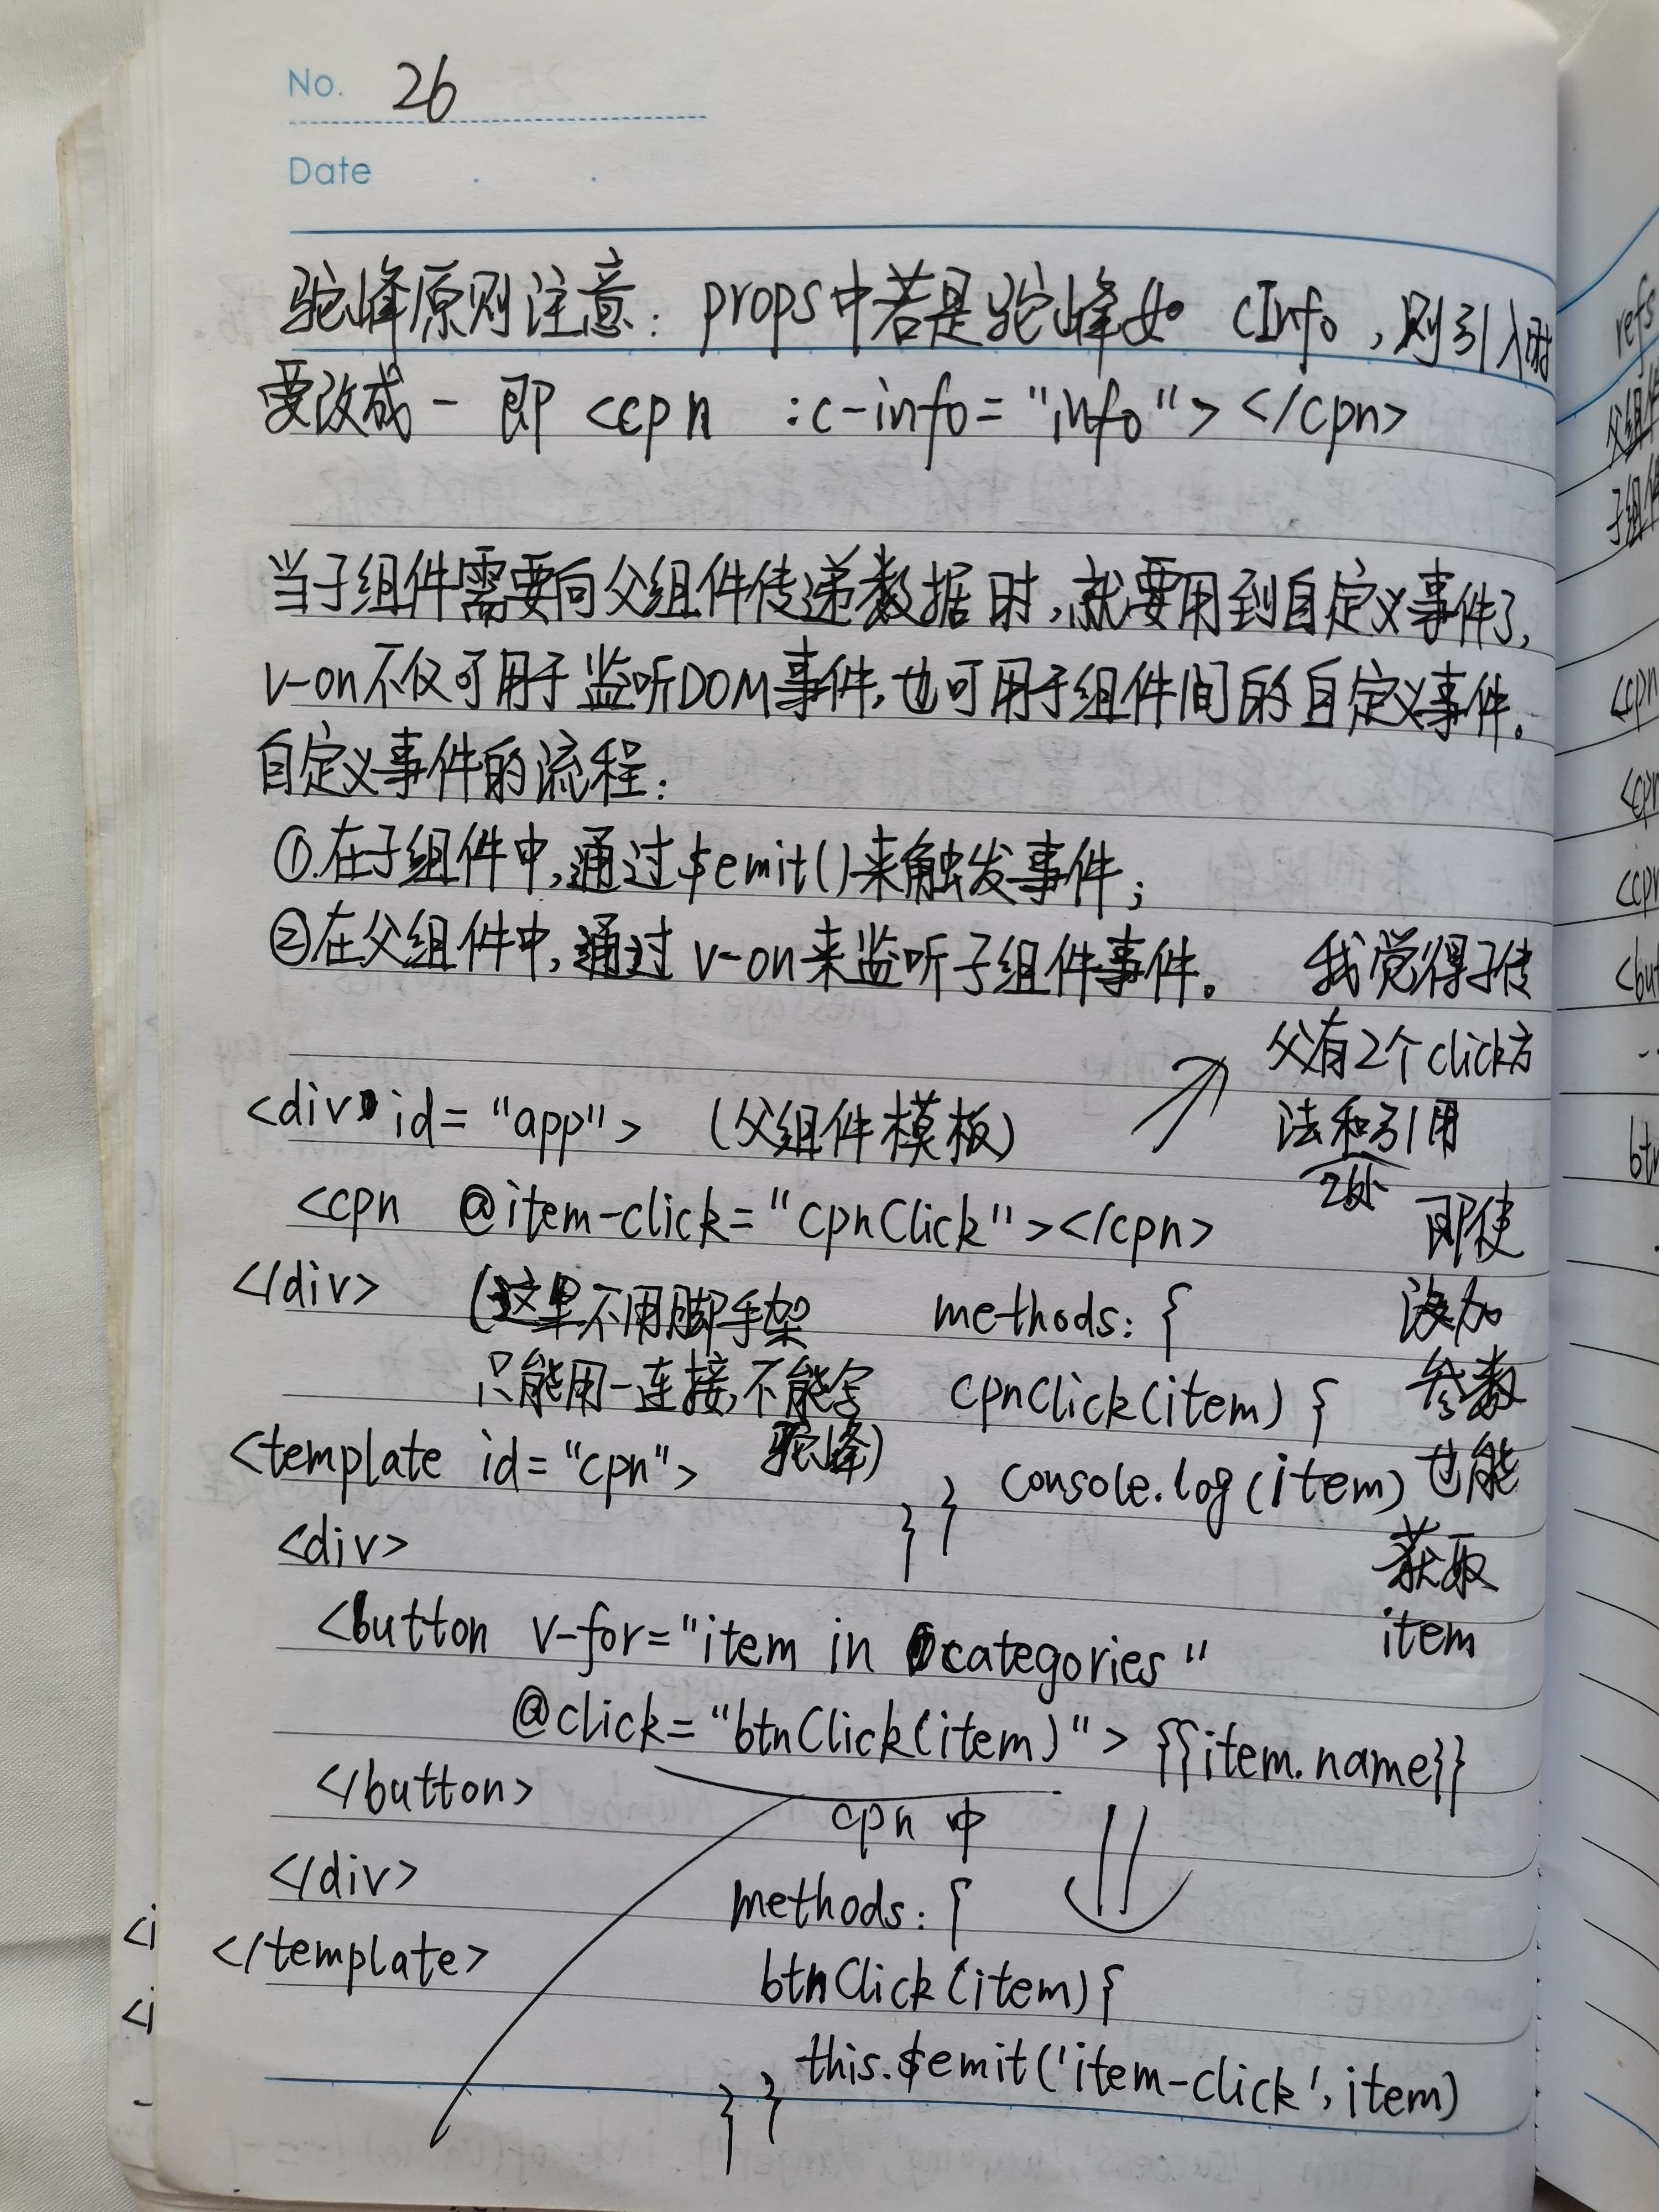 No. 26
Date
驼峰原则注意：props中若是驼峰如 cInfo，则引入时
要改成- 即 <cpn :c-info="info"></cpn>
当子组件需要向父组件传递数据时，就要用到自定义事件了，
v-on不仅可用于监听DOM事件，也可用于组件间的自定义事件。
自定义事件的流程：
①.在子组件中，通过$emit()来触发事件；
②在父组件中，通过v-on来监听子组件事件。
我觉得子传
父有2个click方
法和引用
2处
<div id="app"> (父组件模板)
<cpn @item-click="cpnClick"></cpn>
</div>
(这里不用脚手架
只能用-连接，不能写
驼峰)
methods: {
cpnClick(item) {
console.log(item)
} }
即使
没加
参数
也能
获取
item
<template id="cpn">
<div>
<button v-for="item in categories"
@click="btnClick(item)"> {{item.name}}
</button>
</div>
</template>
cpn 中
methods: {
btnClick(item){
this.$emit('item-click', item)
} }
refs
父组件
子组件
<cpn
<cpn
<cpn
<but
btn
<i
<i